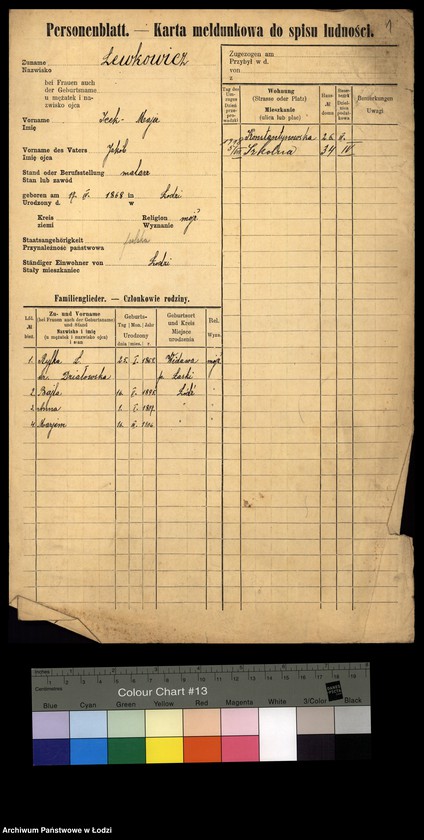 Personenblatt. — Karta meldunkowa do spisu ludności.
1
Zuname Lewkowicz
Nazwisko
bei Frauen auch
der Geburtsname
u mężatek i na-
zwisko ojca
Vorname Icek-Maja
Imię
Vorname des Vaters Jakób
Imię ojca
Stand oder Berufsstellung malarz
Stan lub zawód
geboren am 17. V. 1868 in Łodzi
Urodzony d. w
Kreis Religion mojż
ziemi Wyznanie
Staatsangehörigkeit polska
Przynależność państwowa
Ständiger Einwohner von Łodzi
Stały mieszkaniec
Zugezogen am
Przybył w d.
von
z
Tag des Um-zuges Dzień przeprowadzki
Wohnung
(Strasse oder Platz)
Mieszkanie
(ulica lub plac)
Haus-№ domu
Bemerkungen
Uwagi
Konstantynowska 26
Szkolna 34 IV
Familienglieder. — Członkowie rodziny.
Lfd. № bież.
Zu- und Vorname
(bei Frauen auch der Geburtsname)
und Stand
Nazwisko i imię
(u mężatek i nazwisko ojca)
i stan
Geburts-
Tag Mon. Jahr
Urodzony
dnia mies. r.
Geburtsort
und Kreis
Miejsce
urodzenia
Rel.
Wyzn.
1. Ryfka L. 25. V. Widawa mojż
Działowska p. Łaski
2 Bajla 14. V. 1895 Łódź "
2 Anna 1. V. 1897. " "
4 Maryem 14. 1904 " "
Inches 1 2 3 4 5 6 7 8
Centimetres 1 2 3 4 5 6 7 8 9 10 11 12 13 14 15 16 17 18 19
Colour Chart #13
Blue Cyan Green Yellow Red Magenta White 3/Color Black
Archiwum Państwowe w Łodzi